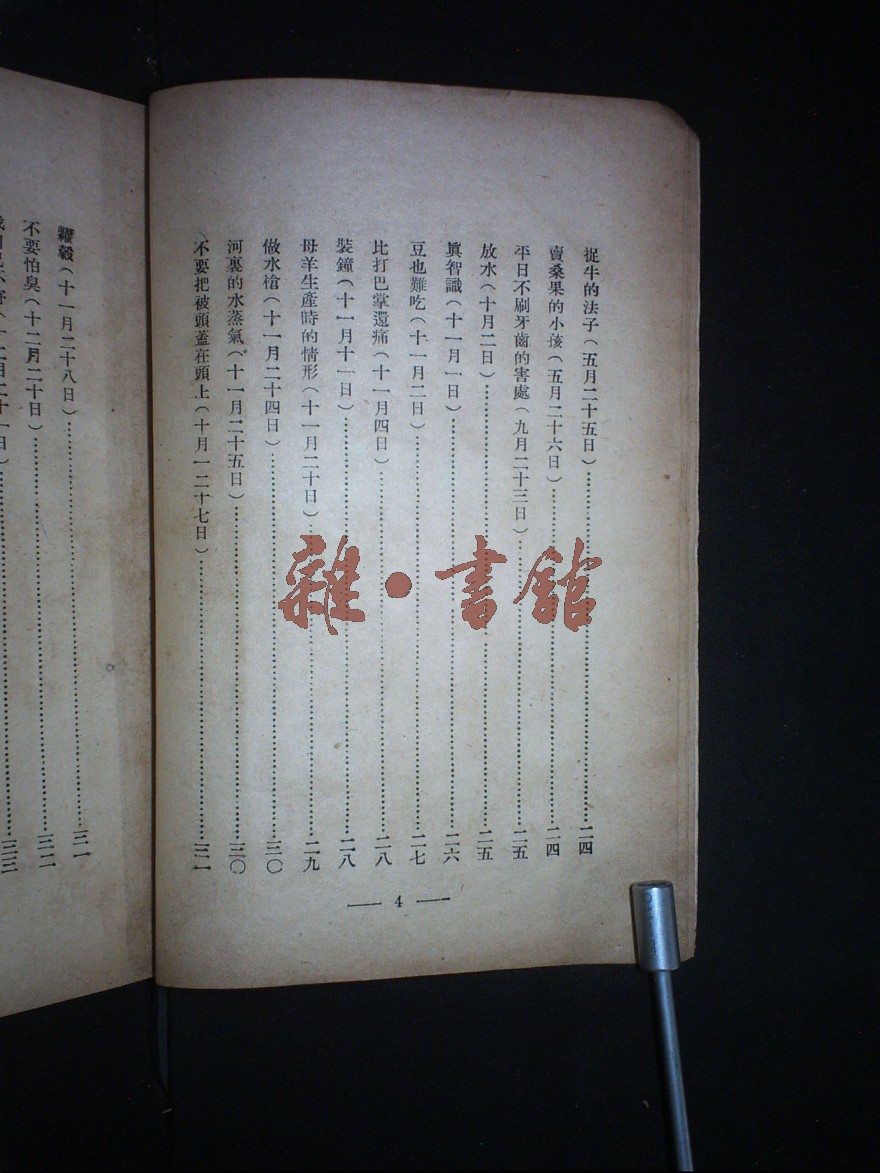 捉牛的法子(五月二十五日)……二四
賣桑果的小孩(五月二十六日)……二四
平日不刷牙齒的害處(九月二十三日)……二五
放水(十月二日)……二五
眞智識(十一月一日)……二六
豆也難吃(十一月二日)……二七
比打巴掌還痛(十一月四日)……二八
裝鐘(十一月十一日)……二八
母羊生產時的情形(十一月二十日)……二九
做水槍(十一月二十四日)……三〇
河裏的水蒸氣(十一月二十五日)……三〇
不要把被頭蓋在頭上(十月一二十七日)……三一
— 4 —
糶穀(十一月二十八日)……三一
不要怕臭(十二月二十日)……三二
三三
雜·書館